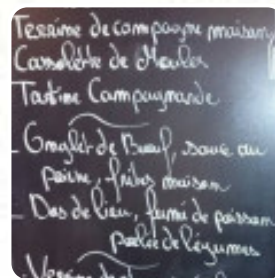 Terrine de campagne maison
Cassolette de Moules
Tartine Campagnarde
- Onglet de Bœuf, sauce au
poivre, frites maison
- Dos de lieu, fumé de poisson
poêlée de légumes